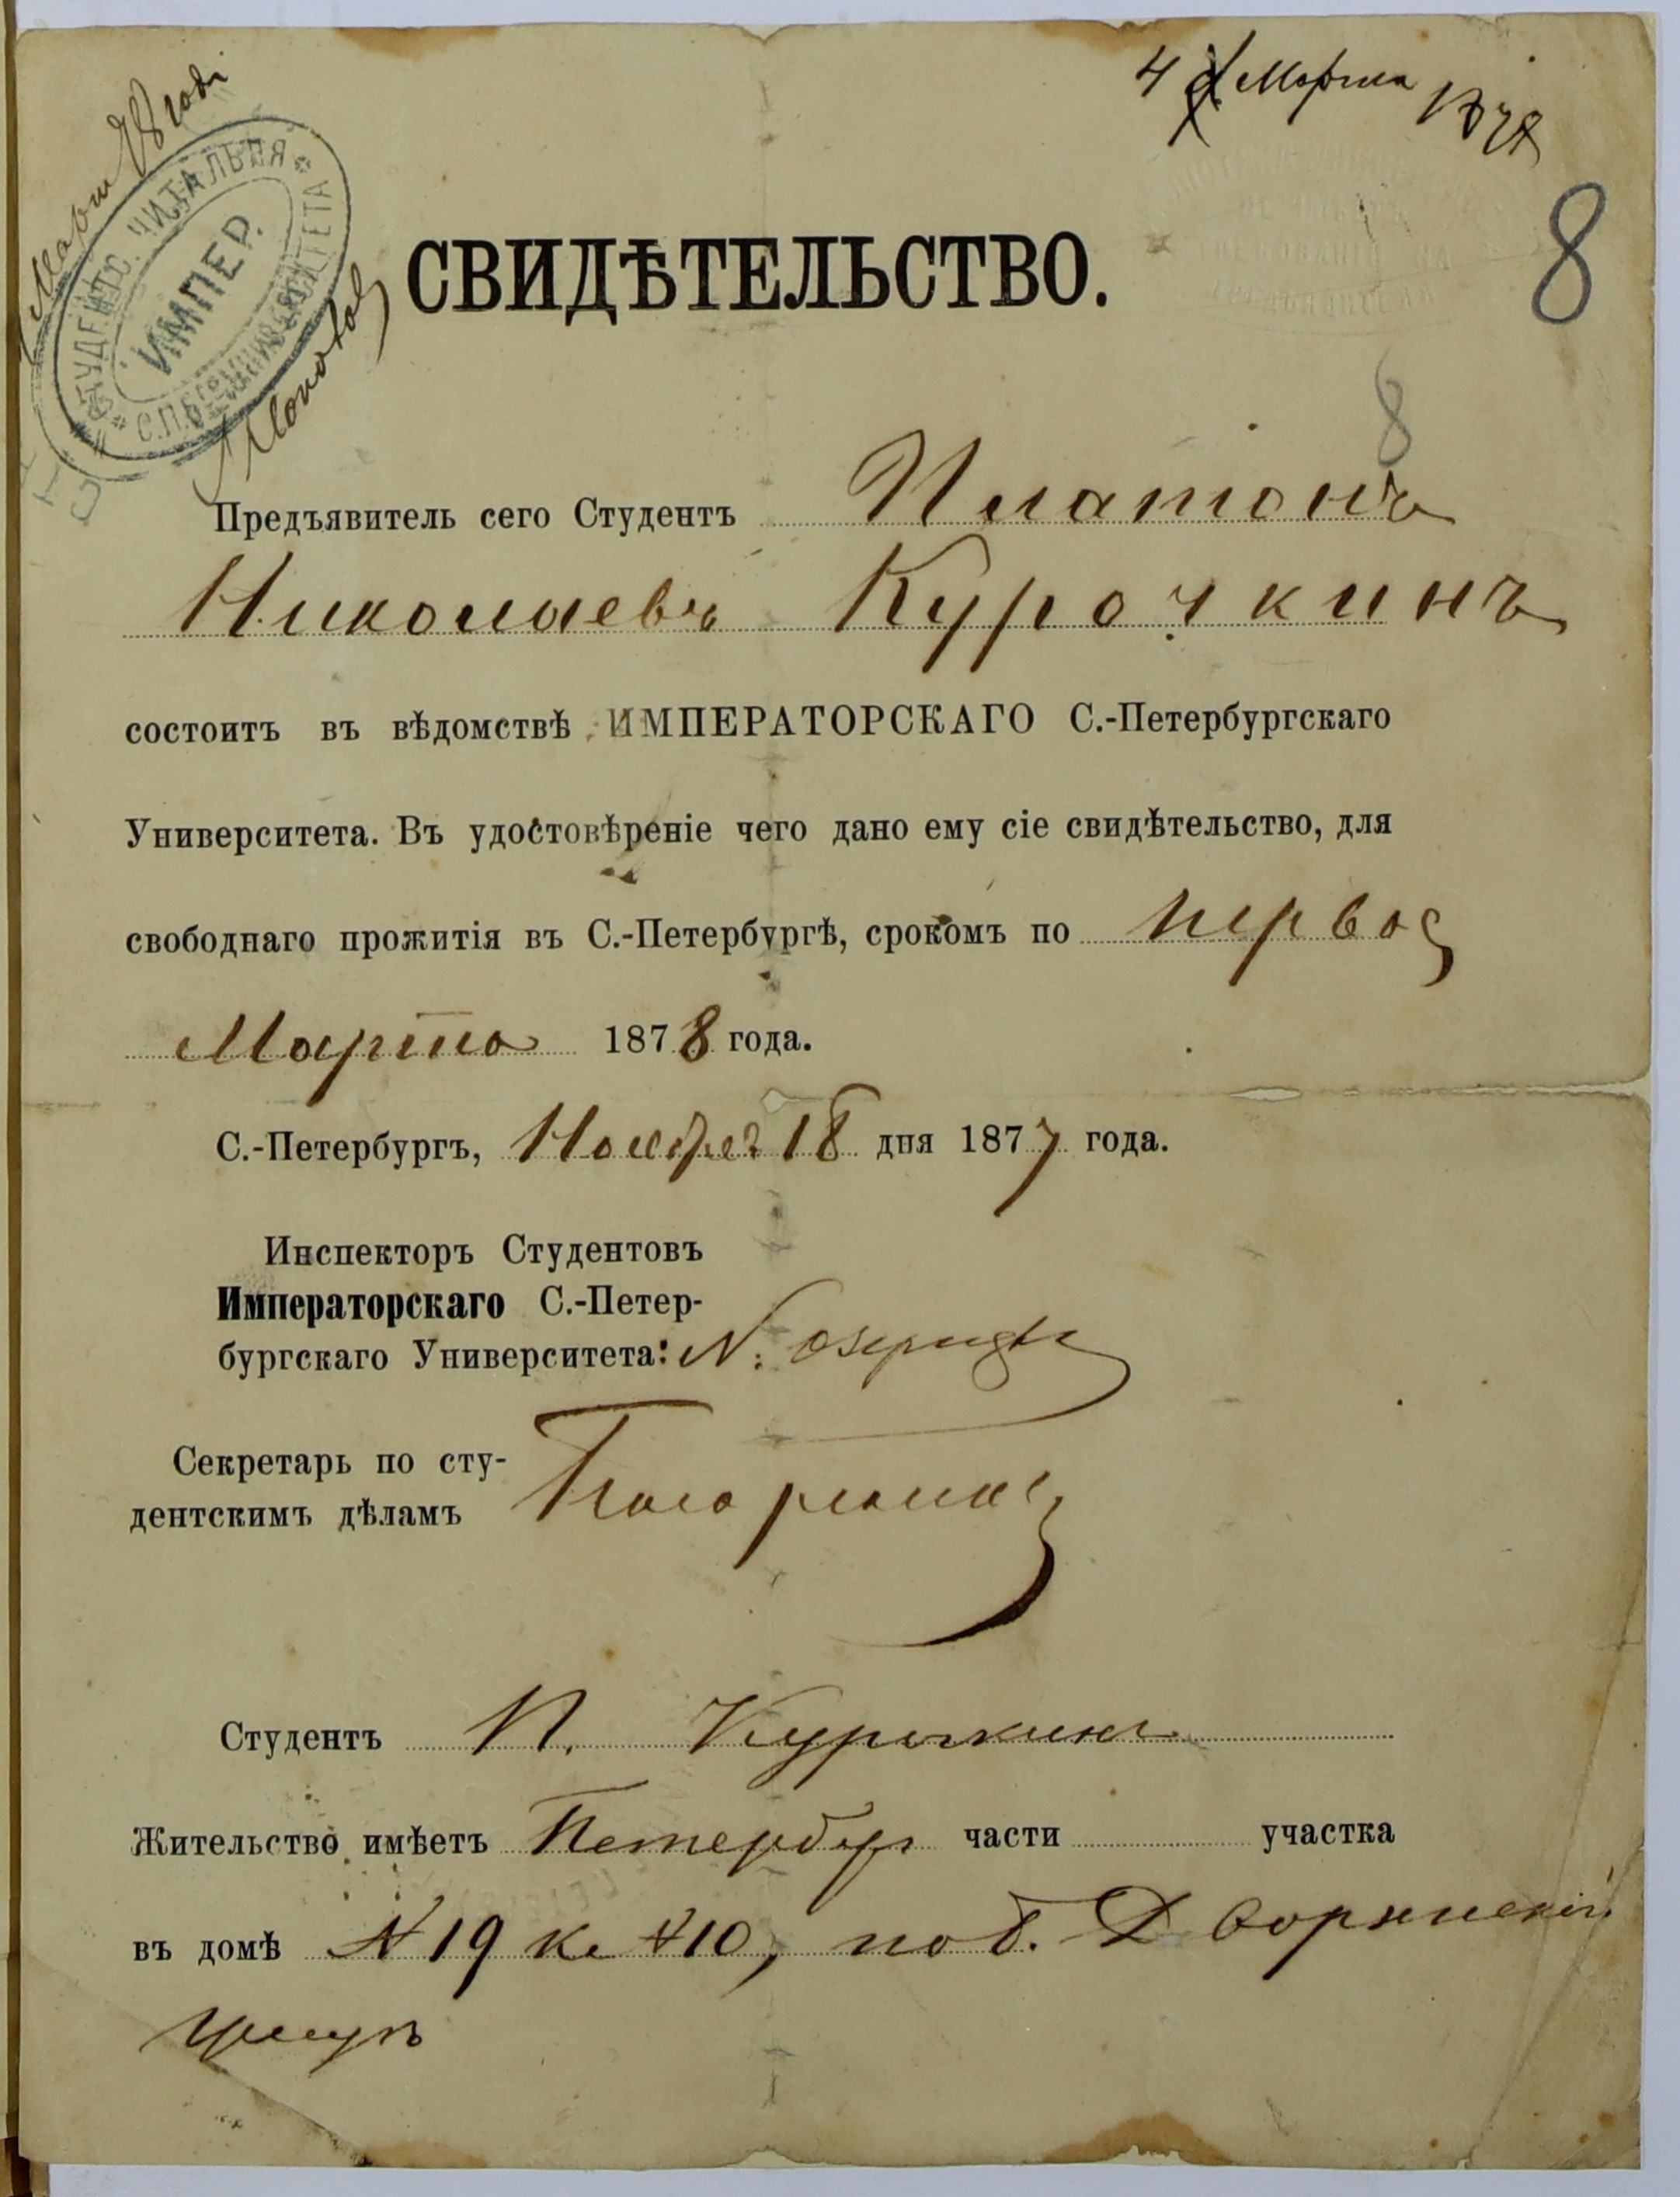 4 Марта 1878
8
СТУДЕНТС. ЧИТАЛЬНЯ
ИМПЕР.
С.П.Б. УНИВЕРСИТЕТА
СВИДѢТЕЛЬСТВО.
8
Предъявитель сего Студентъ Платонъ
Николаевъ Курочкинъ
состоитъ въ вѣдомствѣ ИМПЕРАТОРСКАГО С.-Петербургскаго
Университета. Въ удостовѣреніе чего дано ему сіе свидѣтельство, для
свободнаго прожитія въ С.-Петербургѣ, срокомъ по первое
Марта 1878 года.
С.-Петербургъ, Ноября 18 дня 1877 года.
Инспекторъ Студентовъ
Императорскаго С.-Петер-
бургскаго Университета: N.
Секретарь по сту-
дентскимъ дѣламъ
Студентъ П. Курочкинъ
Жительство имѣетъ Петербург части участка
въ домѣ № 19 кв № 10, по б. Дворянской
улицѣ